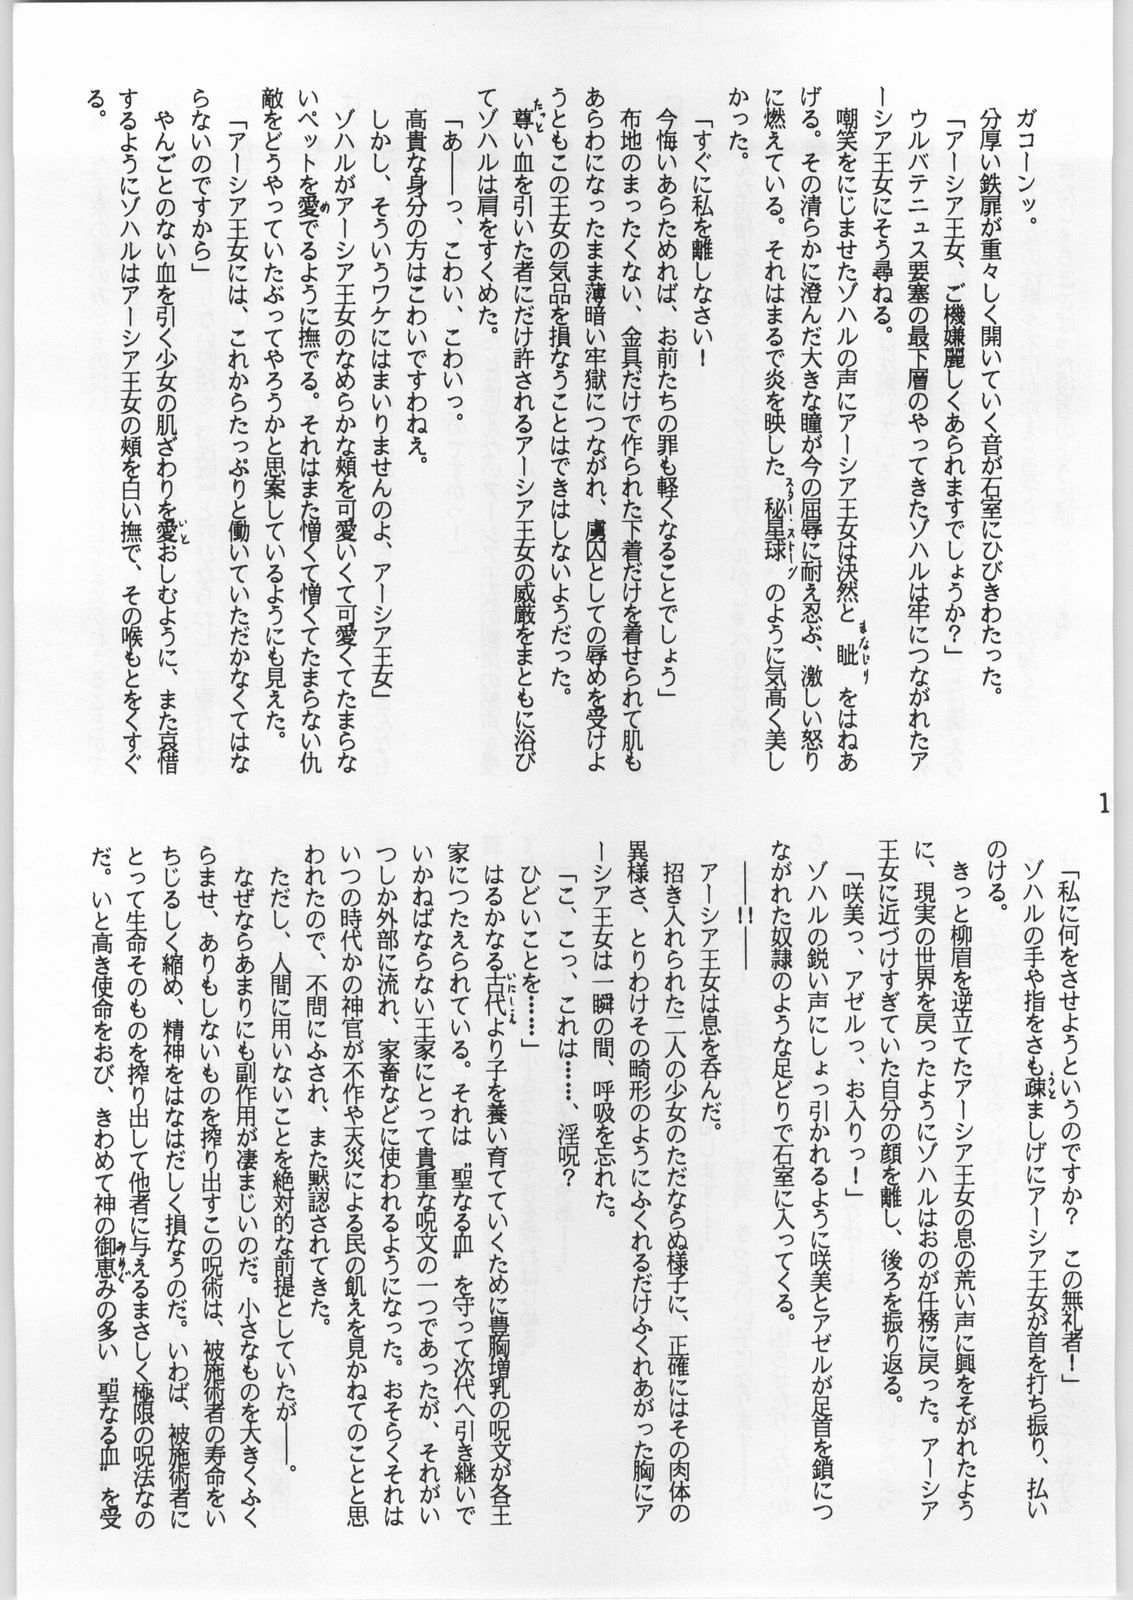 ガコーンッ。
分厚い鉄扉が重々しく開いていく音が石室にひびきわたった。
「アーシア王女、ご機嫌麗しくあられますでしょうか？」
ウルバテニュス要塞の最下層のやってきたゾハルは牢につながれたア
ーシア王女にそう尋ねる。
嘲笑をにじませたゾハルの声にアーシア王女は決然と眦をはねあ
まなじり
げる。その清らかに澄んだ大きな瞳が今の屈辱に耐え忍ぶ、激しい怒り
に燃えている。それはまるで炎を映した秘星球のように気高く美し
スター・ストーン
かった。
「すぐに私を離しなさい！
今悔いあらためれば、お前たちの罪も軽くなることでしょう」
布地のまったくない、金具だけで作られた下着だけを着せられて肌も
あらわになったまま薄暗い牢獄につながれ、虜囚としての辱めを受けよ
うともこの王女の気品を損なうことはできはしないようだった。
尊い血を引いた者にだけ許されるアーシア王女の威厳をまともに浴び
たっと
てゾハルは肩をすくめた。
「あ――っ、こわい、こわいっ。
高貴な身分の方はこわいですわねぇ。
しかし、そういうワケにはまいりませんのよ、アーシア王女」
ゾハルがアーシア王女のなめらかな頬を可愛いくて可愛くてたまらな
いペットを愛でるように撫でる。それはまた憎くて憎くてたまらない仇
め
敵をどうやっていたぶってやろうかと思案しているようにも見えた。
「アーシア王女には、これからたっぷりと働いていただかなくてはな
らないのですから」
やんごとのない血を引く少女の肌ざわりを愛おしむように、また哀惜
いと
するようにゾハルはアーシア王女の頬を白い撫で、その喉もとをくすぐ
る。
1
「私に何をさせようというのですか？　この無礼者！」
ゾハルの手や指をさも疎ましげにアーシア王女が首を打ち振り、払い
うと
のける。
きっと柳眉を逆立てたアーシア王女の息の荒い声に興をそがれたよう
に、現実の世界を戻ったようにゾハルはおのが任務に戻った。アーシア
王女に近づけすぎていた自分の顔を離し、後ろを振り返る。
「咲美っ、アゼルっ、お入りっ！」
ゾハルの鋭い声にしょっ引かれるように咲美とアゼルが足首を鎖につ
ながれた奴隷のような足どりで石室に入ってくる。
――!!――
アーシア王女は息を呑んだ。
招き入れられた二人の少女のただならぬ様子に、正確にはその肉体の
異様さ、とりわけその畸形のようにふくれるだけふくれあがった胸にア
ーシア王女は一瞬の間、呼吸を忘れた。
「こ、こっ、これは……、淫呪？
ひどいことを……」
はるかなる古代より子を養い育てていくために豊胸増乳の呪文が各王
いにしえ
家につたえられている。それは〝聖なる血〟を守って次代へ引き継いで
いかねばならない王家にとって貴重な呪文の一つであったが、それがい
つしか外部に流れ、家畜などに使われるようになった。おそらくそれは
いつの時代かの神官が不作や天災による民の飢えを見かねてのことと思
われたので、不問にふされ、また黙認されてきた。
ただし、人間に用いないことを絶対的な前提としていたが――。
なぜならあまりにも副作用が凄まじいのだ。小さなものを大きくふく
らませ、ありもしないものを搾り出すこの呪術は、被施術者の寿命をい
ちじるしく縮め、精神をはなはだしく損なうのだ。いわば、被施術者に
とって生命そのものを搾り出して他者に与えるまさしく極限の呪法なの
だ。いと高き使命をおび、きわめて神の御恵みの多い〝聖なる血〟を受
みめぐ